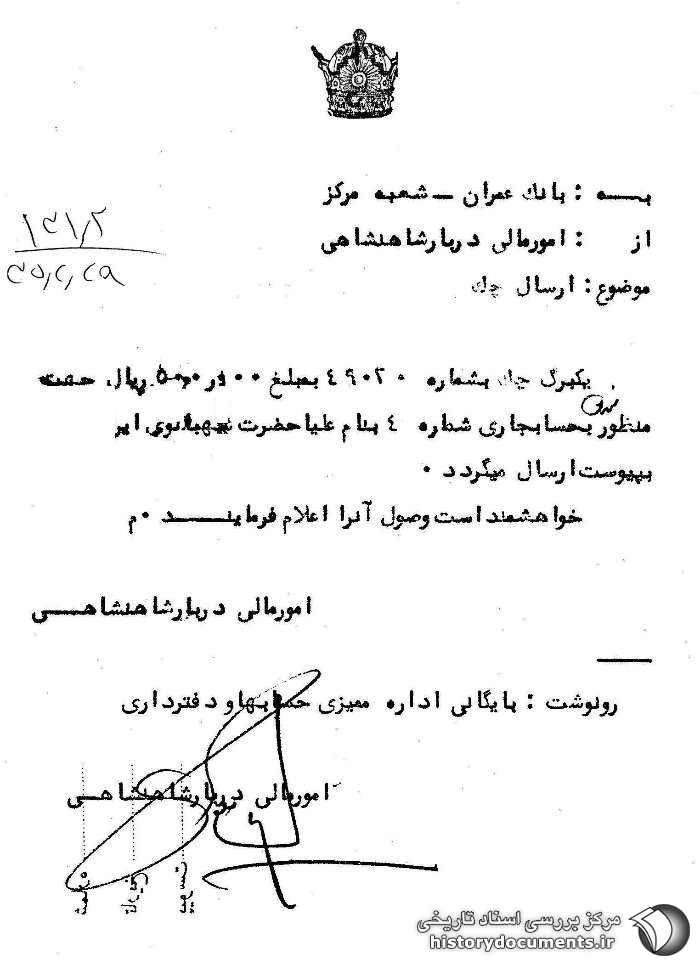 بـــه : بانك عمران ــ شعبه مركز
از : امورمالی دربارشاهنشاهی
موضوع: ارسال چك
۱۳۱٫۲
۳۵٫۲٫۲۹
یكبرگ چك بشماره ۴۹۰۲۰ بمبلغ ریال جهت
منظور بحسابجاری شماره ۴ بنام علیاحضرت شهبانوی ایر
بپیوست ارسال میگردد ۰
خواهشمند است وصول آنرا اعلام فرمایـــند ۰م
امورمالی دربارشاهنشاهـــی
رونوشت : بایگانی اداره ممیزی حسابهاو دفترداری
امورمالی دربارشاهنشاهـــی
مرکز بررسی اسناد تاریخی
historydocuments.ir